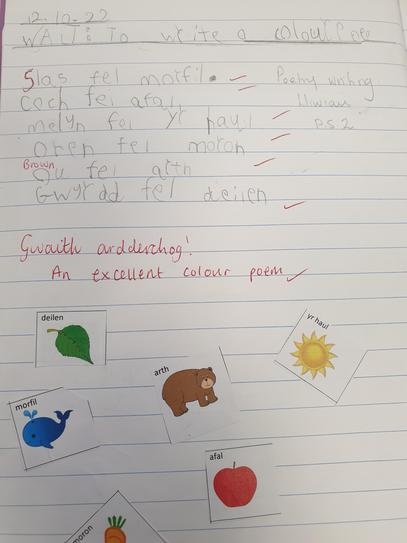 12.10.22
WALT: To write a colour Poe
Slas fel morfil. Poetry writing
Coch fel afal. lliwiau
melyn fel yr haul ps.2
Oren fel moron
Brown
Du fel arth
Gwyrdd fel deilen
Gwaith ardderchog!
An excellent colour poem
deilen
yr haul
arth
morfil
afal
moron